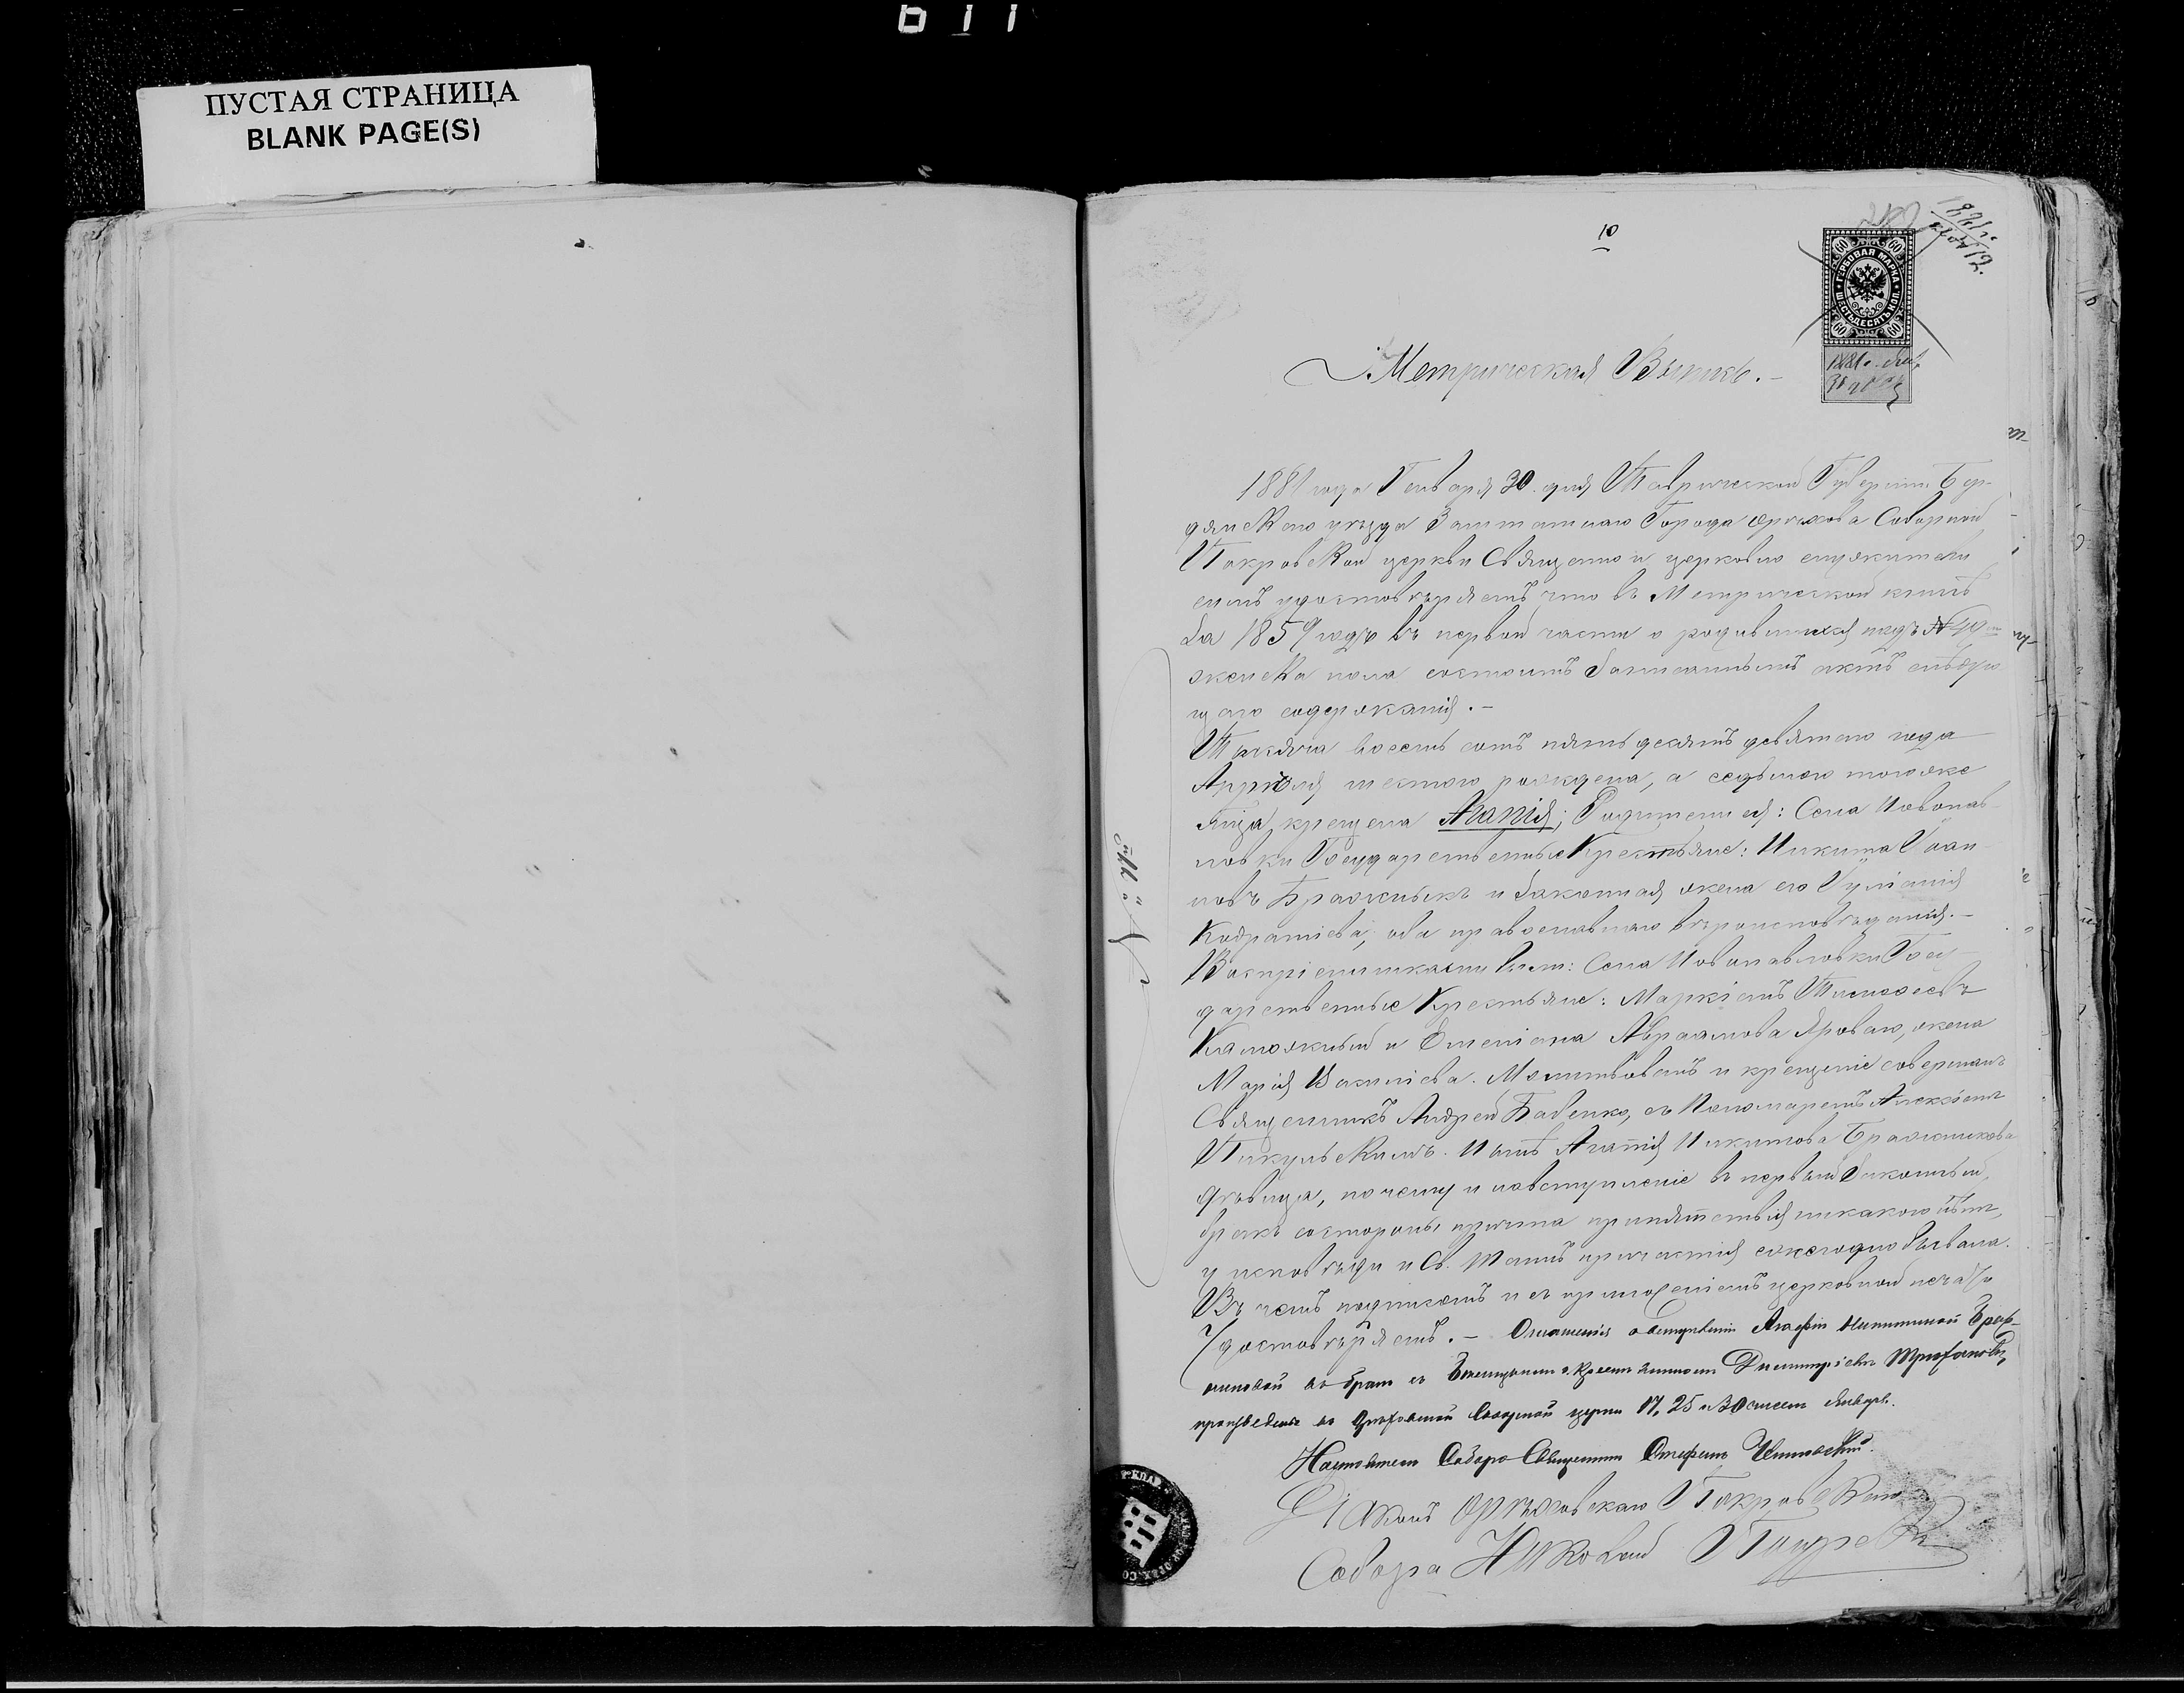 611
ПУСТАЯ СТРАНИЦА
BLANK PAGE(S)
10
60 60
ГЕРБОВАЯ МАРКА
ШЕСТЬДЕСЯТЪ КОП.
60 60
Метрическая Выпись.-
1881 года Генваря 30 дня Таврической Губерніи Бер-
дянскаго уѣзда Заштатнаго Города Орѣхова Соборной
Покровской церкви Священно и церковно служители
симъ удостовѣряемъ что въ Метрической книгѣ
За 1859 годъ въ первой части о родившихся подъ №
женска пола состоитъ Записаннымъ актъ слѣдую
щаго содержанія.-
Тысяча восемь сотъ пятьдесятъ девятаго года
Апрѣля шестаго рождена, а седьмаго тогоже
крещена Агапія; Родители ея: Села Новопав-
ловки Государственные Крестьяне: Никита Іоан-
новъ Бражникъ и Законная жена его Іуліанія
Кодратіева, оба православнаго вѣроисповѣданія.-
Воспріемниками были: Села Новопавловки Госу-
дарственные Крестьяне: Маркіянъ Тимофеевъ
и Яроваго, жена
Марія Молитвовалъ и крещеніе совершалъ
Священникъ Андрей Бабенко, съ Пономаремъ Алексѣемъ
Пикульскимъ. Нынѣ Агапія Никитова Бражникова
дѣвица, почему и на вступленіе въ первый Законный
бракъ со стороны причта препятствія никакого нѣтъ,
у исповѣди и Св. Таинъ причастія ежегодно бывала.
Въ чемъ подписомъ и съ приложеніемъ церковной печати
Удостовѣряемъ.- Оглашенія о вступленіи Агафіи Никитиной Браж-
никовой въ бракъ съ Димитріевъ Трифоновъ,
произведены въ Орѣховской Соборной церкви 17, 25 и 30 чиселъ Января.
Настоятель Собора Священникъ Стефанъ
Діаконъ Орѣховскаго Покровскаго
Собора Николай